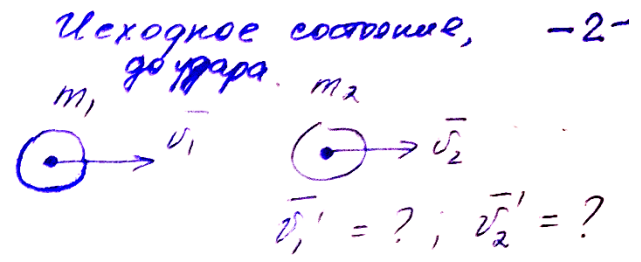 Исходное состояние, -2-
до удара.
m₁ m₂
v̄₁ v̄₂
v̄₁' = ? ; v̄₂' = ?